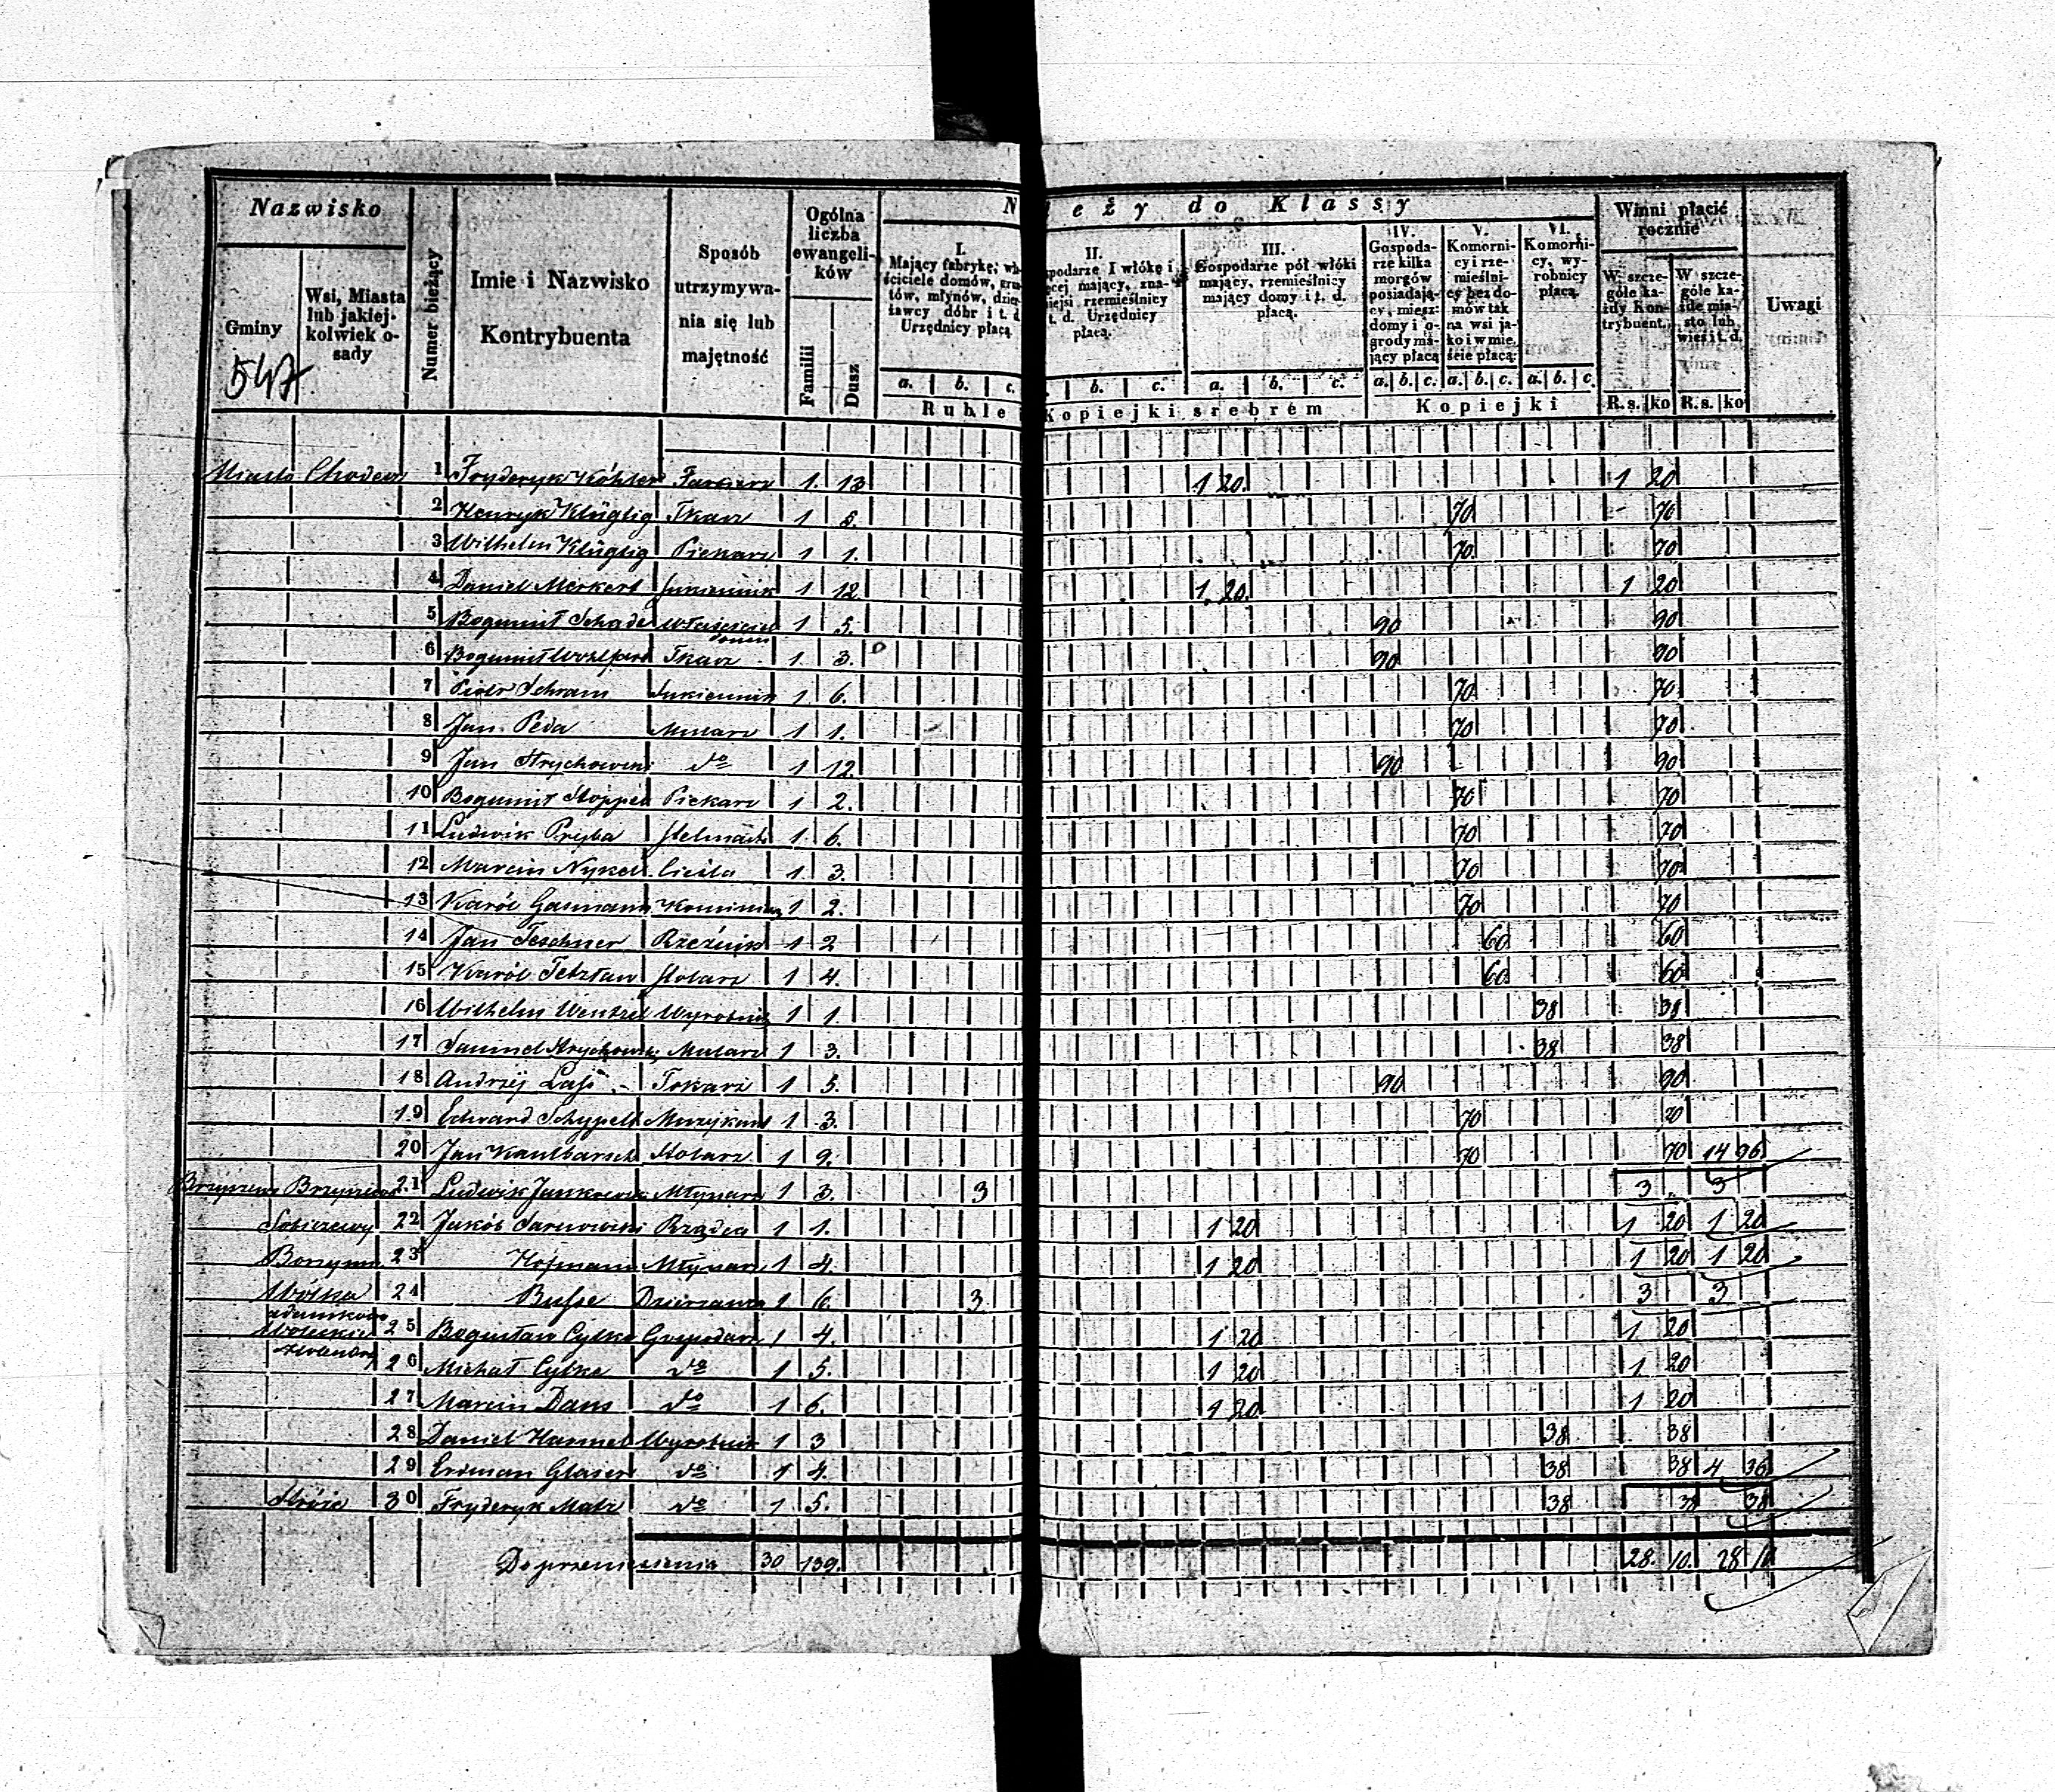 Nazwisko
Gminy
Wsi, Miasta lub jakiej-kolwiek o-sady
Numer bieżący
Imie i Nazwisko Kontrybuenta
Sposób utrzymywa-nia się lub majętność
Ogólna liczba ewangeli-ków
Familii
Dusz
N eży do Klassy
I. Mający fabrykę, wła-ściciele domów, grun-tów, młynów, dzier-żawcy dóbr i t. d. Urzędnicy płacą
II. spodarze 1 włókę i ęcej mający, zna-niejsi rzemieślnicy t. d. Urzędnicy płacą.
III. Gospodarze pół włóki mający, rzemieślnicy mający domy i t. d. płacą.
IV. Gospoda-rze kilka morgów posiadają-cy, miesz: domy i o-grody ma-jący płacą
V. Komorni-cy i rze-mieślni-cy bez do-mów tak na wsi ja-ko i w mie-ście płacą:
VI. Komorni-cy, wy-robnicy płacą.
Winni płacić rocznie
W szcze-góle ka-żdy Kon-trybuent.
W szcze-góle ka-żde mia-sto lub wieś i t. d.
Uwagi
547
a. b. c. b. c. a. b. c. a. b. c. a. b. c. a. b. c.
Ruble i Kopiejki srebrem Kopiejki R.s. ko R.s. ko
Miasto Chodecz 1 Fryderyk Köhler Farbierz 1. 13 1 20. 1 20
2 Henryk Klüglig Tkacz 1 5. 70 70
3 Wilhelm Klüglig Piekarz 1 1. 70 70
4 Daniel Merkert Sukiennik 1 12 1 20. 1 20
5 Bogumił Schade Właściciel domu 1 5. 90 90
6 Bogumił Tkacz 1. 3. 90 90
7 Piotr Schram Sukiennik 1 6. 70 70
8 Jan Peda Mularz 1 1. 70 70
9 Jan Strychowski do 1 12 90 90
10 Bogumił Piekarz 1 2. 70 70
11 Ludwik Pryba Stelmach 1 6. 70 70
12 Marcin Nykel Cieśla 1 3. 70 70
13 Karól Gasmann Kominiarz 1 2. 70 70
14 Jan Teschner Rzeźnik 1 2 60 60
15 Karól Tetzlaw Stolarz 1 4. 60 60
16 Wilhelm Wentzel Wyrobnik 1 1. 38 38
17 Samuel Strychowski Mularz 1 3. 38 38
18 Andrzéj Tokarz 1 5. 90 90
19 Edward Schyppelt Muzykant 1 3. 70 70
20 Jan Kaulbarsch Stolarz 1 9. 70 70 14 96
21 Ludwik Jankowski Młynarz 1 3. 3 3 3
22 Jakób Sarnowski Rządca 1 1. 1 20 1 20 1 20
23 Hofmann Młynarz 1 4. 1 20 1 20 1 20
Wólka 24 Busse Dzierżawca 1 6. 3 3 3
25 Bogusław Cylke Gospodarz 1 4. 1 20 1 20
26 Michał Cylke do 1 5. 1 20 1 20
27 Marcin Daus do 1 6. 1 20 1 20
28 Daniel Hammel Wyrobnik 1 3 38 38
29 Erdman Glaser do 1 4. 38 38 4 36
30 Fryderyk Matz do 1 5. 38 38 38
Do przeniesienia 30 139. 28. 10. 28 10